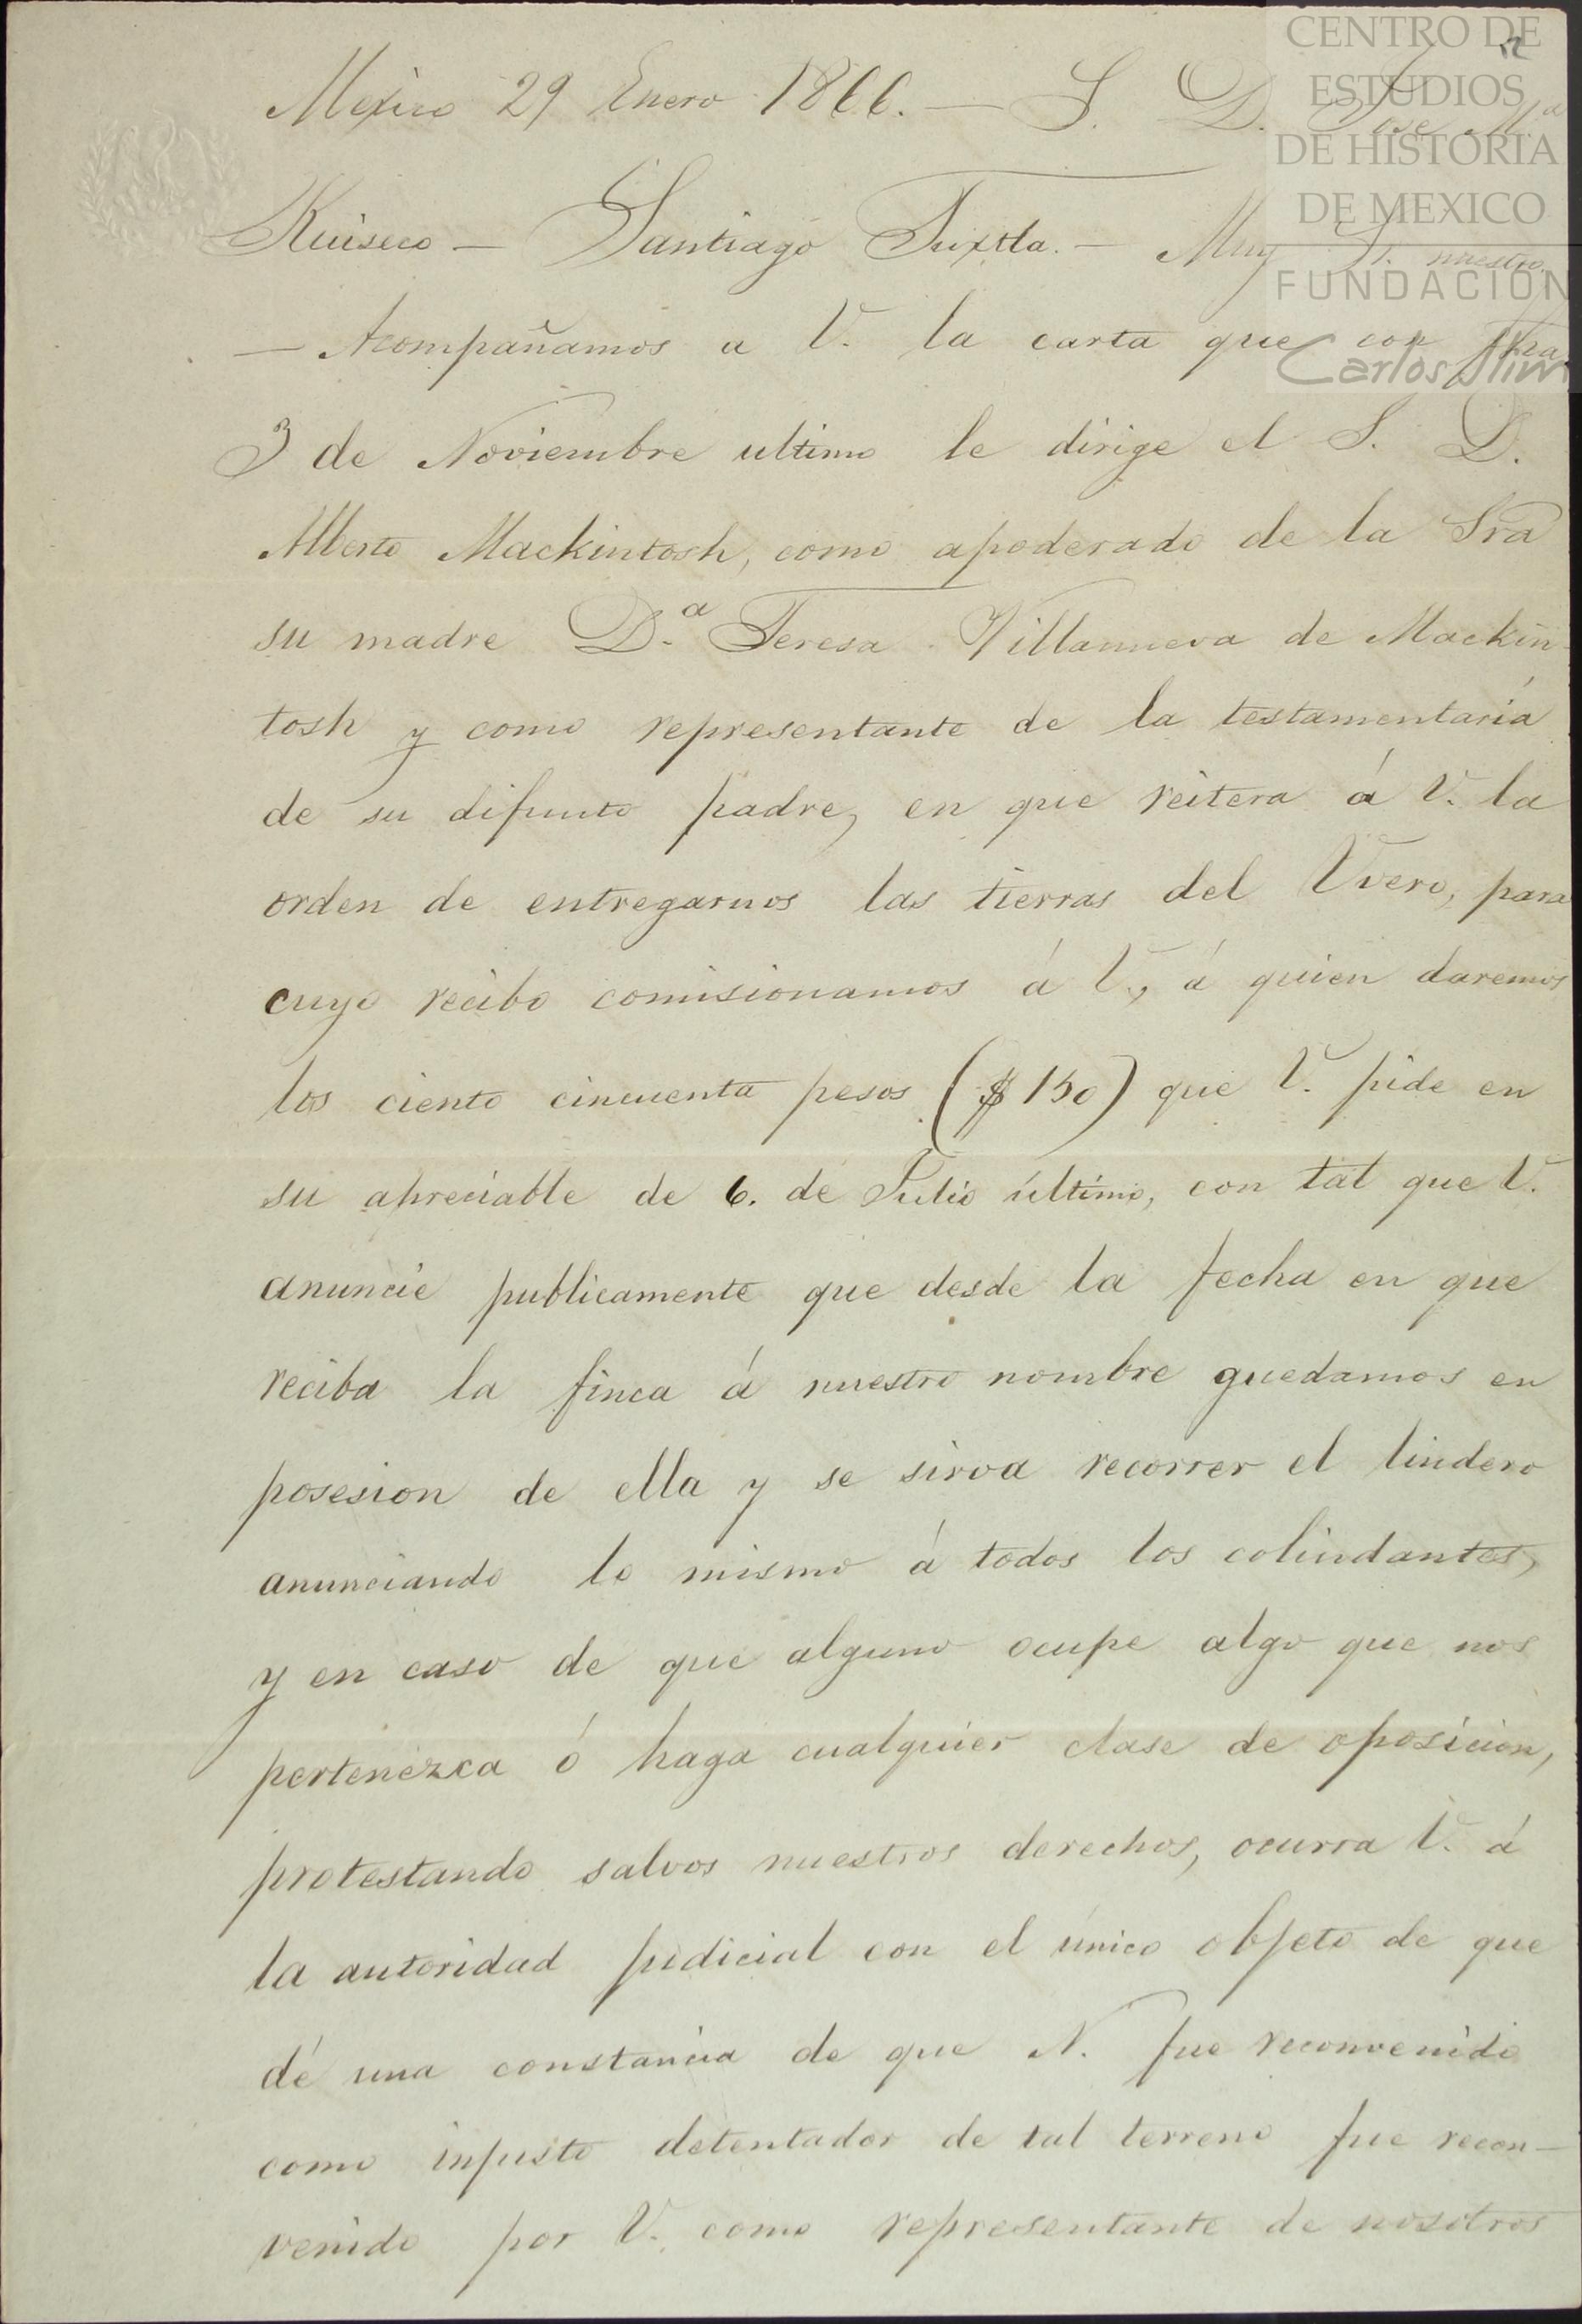 CENTRO DE
ESTUDIOS
DE HISTORIA
DE MEXICO
FUNDACIÓN
Carlos Slim
12
Mexico 29 Enero 1866. — S. D. Jose Ma
Ruiseco — Santiago Tuxtla. — Muy S. nuestro.
— Acompañamos a V. la carta que con fha
3 de Noviembre ultimo le dirige el S. D.
Alberto Mackintosh, como apoderado de la Sra
su madre D.a Teresa Villanueva de Mackin-
tosh y como representante de la testamentaría
de su difunto padre, en que reitera á V. la
orden de entregarnos las tierras del Uvero, para
cuyo recibo comisionamos á V., á quien daremos
los ciento cincuenta pesos ($ 150) que V. pide en
su apreciable de 6. de Julio último, con tal que V.
anuncie publicamente que desde la fecha en que
reciba la finca á nuestro nombre quedamos en
posesion de ella y se sirva recorrer el lindero
anunciando lo mismo á todos los colindantes,
y en caso de que alguno ocupe algo que nos
pertenezca ó haga cualquier clase de oposicion,
protestando salvos nuestros derechos, ocurra V. á
la autoridad judicial con el único objeto de que
dé una constancia de que N. fue reconvenido
como injusto detentador de tal terreno fue recon-
venido por V. como representante de nosotros